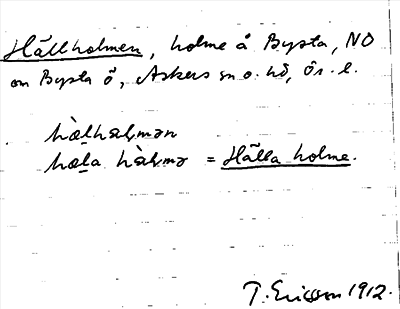 Hällholmen, holme å Bysta, NO
om Bysta ö, Askers sn o. hd, Ör. l.
hæ̀lhɑɭmən
hæla hɑ̀ɭmə = Hälla holme.
T. Ericsson 1912.